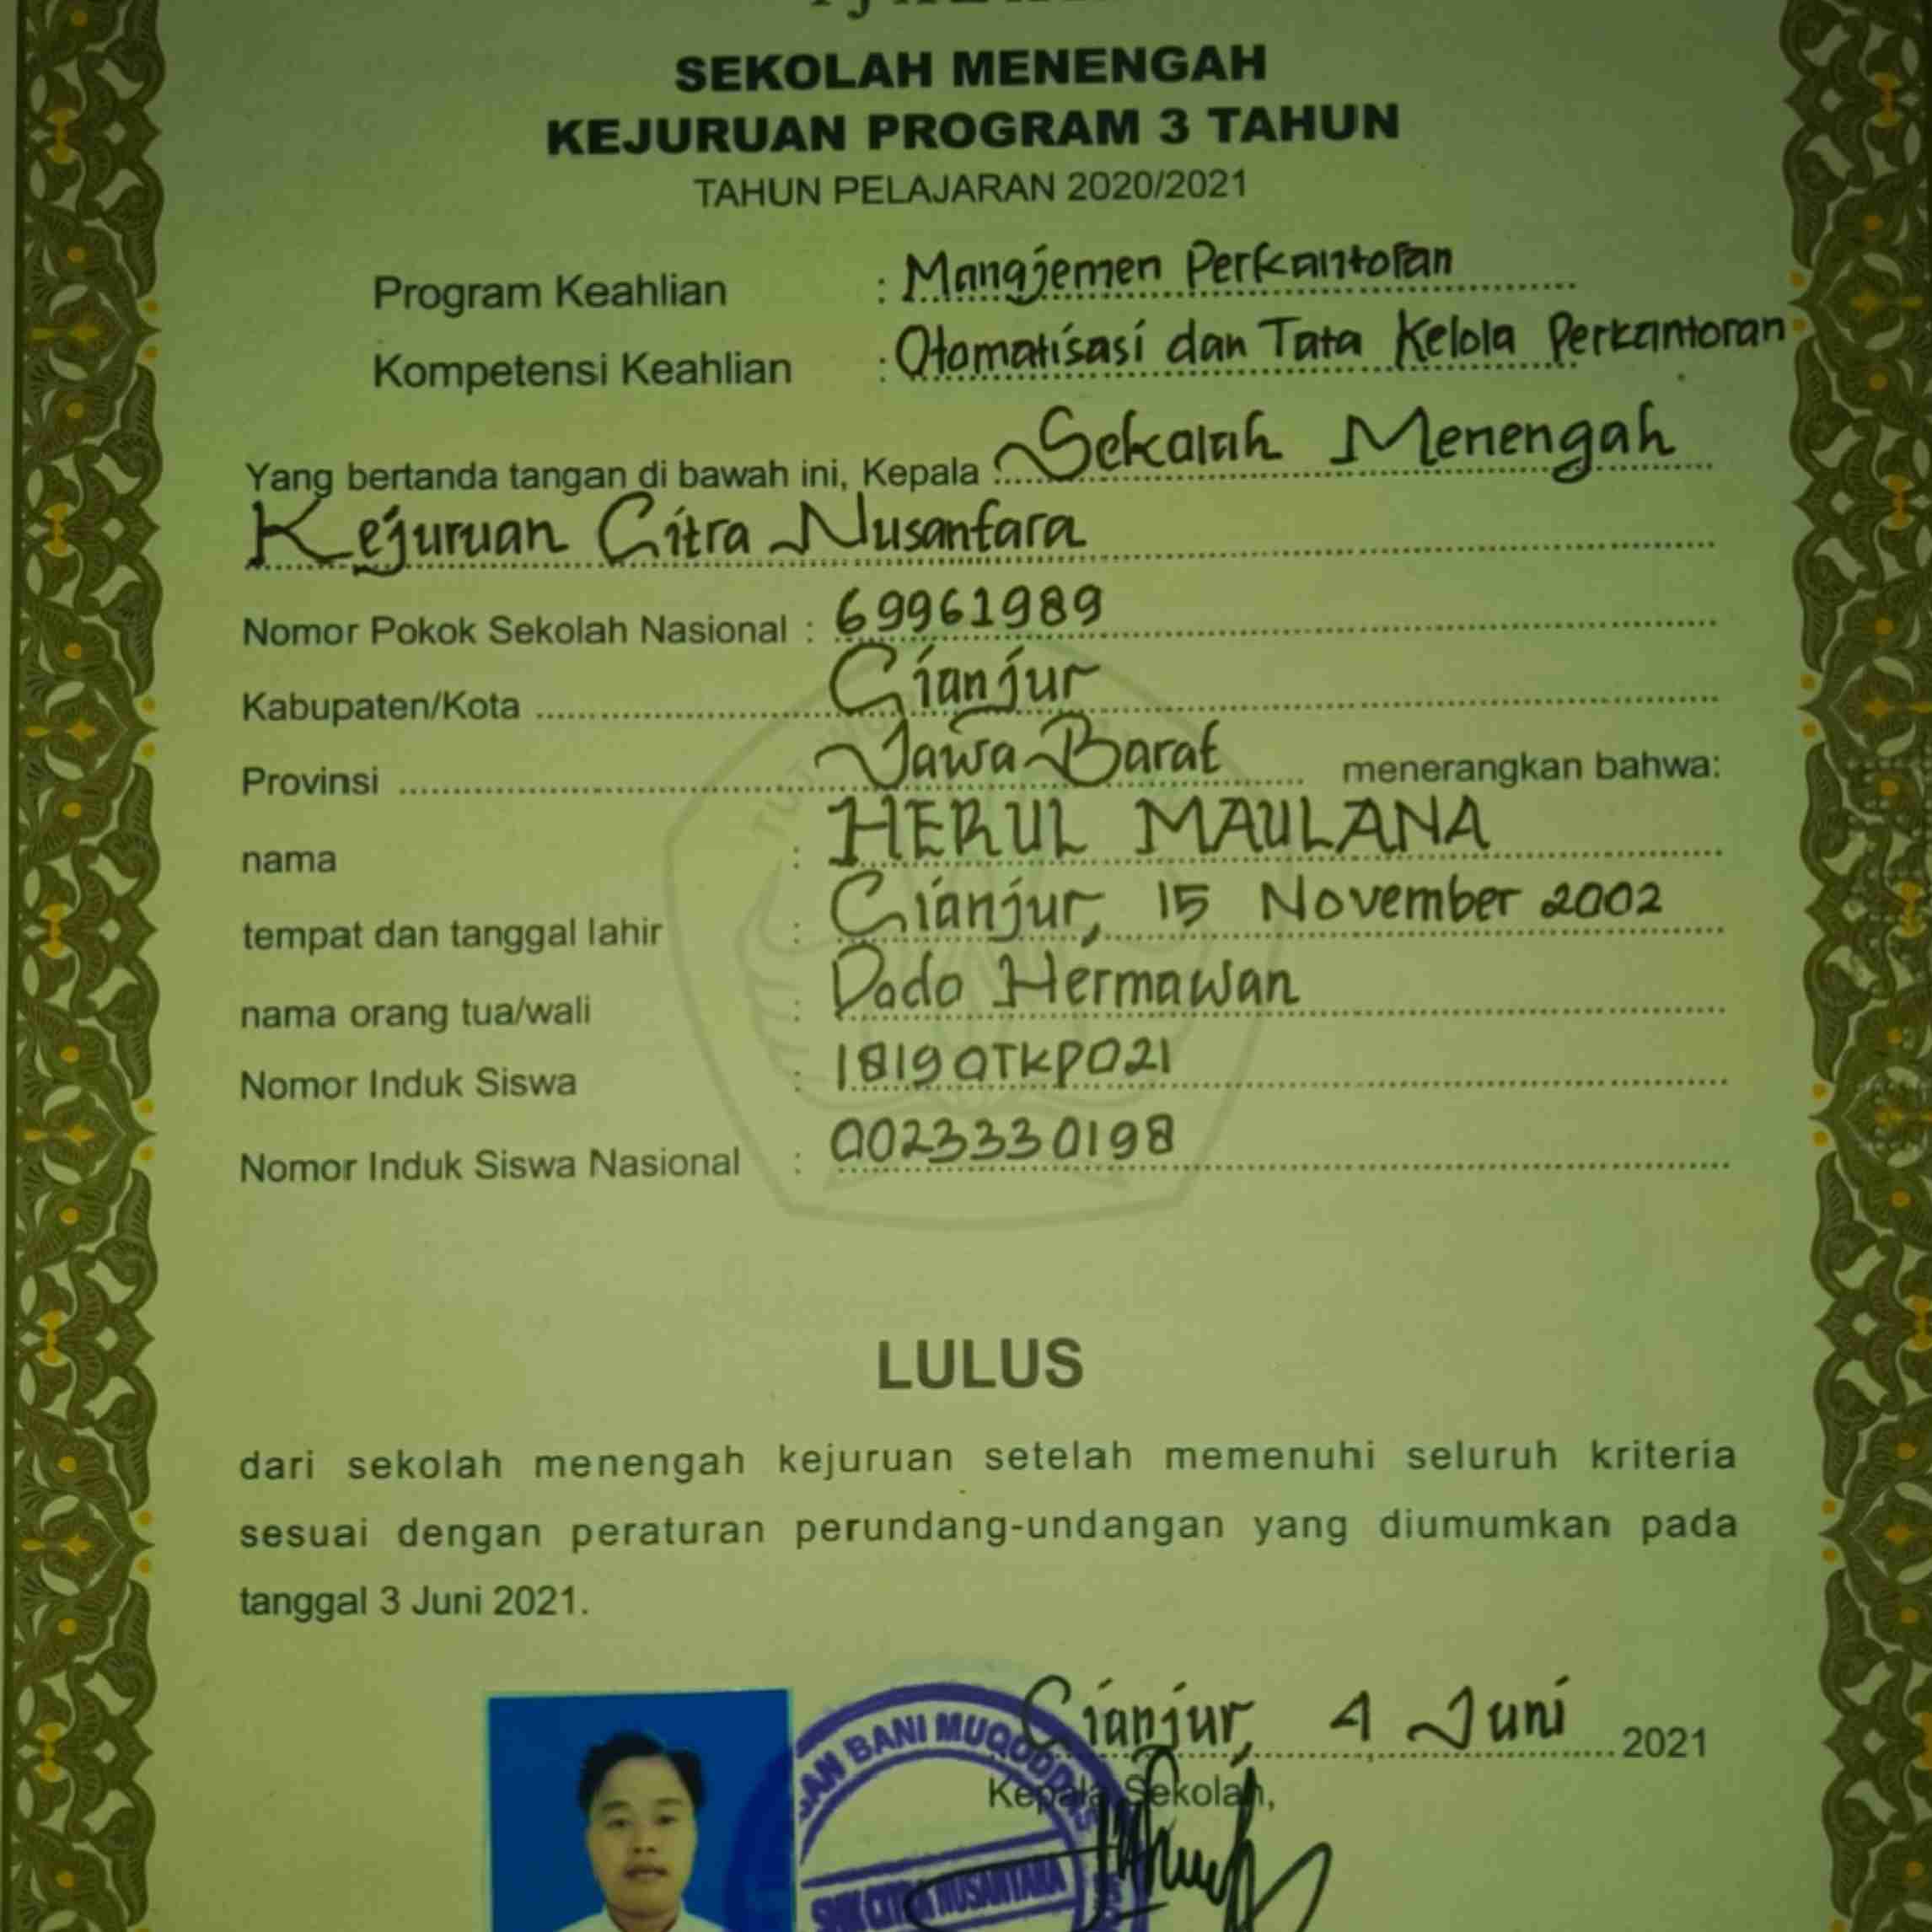 SEKOLAH MENENGAH
KEJURUAN PROGRAM 3 TAHUN
TAHUN PELAJARAN 2020/2021
Program Keahlian : Manajemen Perkantoran
Kompetensi Keahlian : Otomatisasi dan Tata Kelola Perkantoran
Yang bertanda tangan di bawah ini, Kepala Sekolah Menengah
Kejuruan Citra Nusantara
Nomor Pokok Sekolah Nasional : 69961989
Kabupaten/Kota Cianjur
Provinsi Jawa Barat menerangkan bahwa:
nama : HERUL MAULANA
tempat dan tanggal lahir : Cianjur, 15 November 2002
nama orang tua/wali : Dado Hermawan
Nomor Induk Siswa : 1819OTKP021
Nomor Induk Siswa Nasional : 0023330198
LULUS
dari sekolah menengah kejuruan setelah memenuhi seluruh kriteria
sesuai dengan peraturan perundang-undangan yang diumumkan pada
tanggal 3 Juni 2021.
Cianjur, 4 Juni 2021
Kepala Sekolah,
BANI MUQODDAS
SMK CITRA NUSANTARA